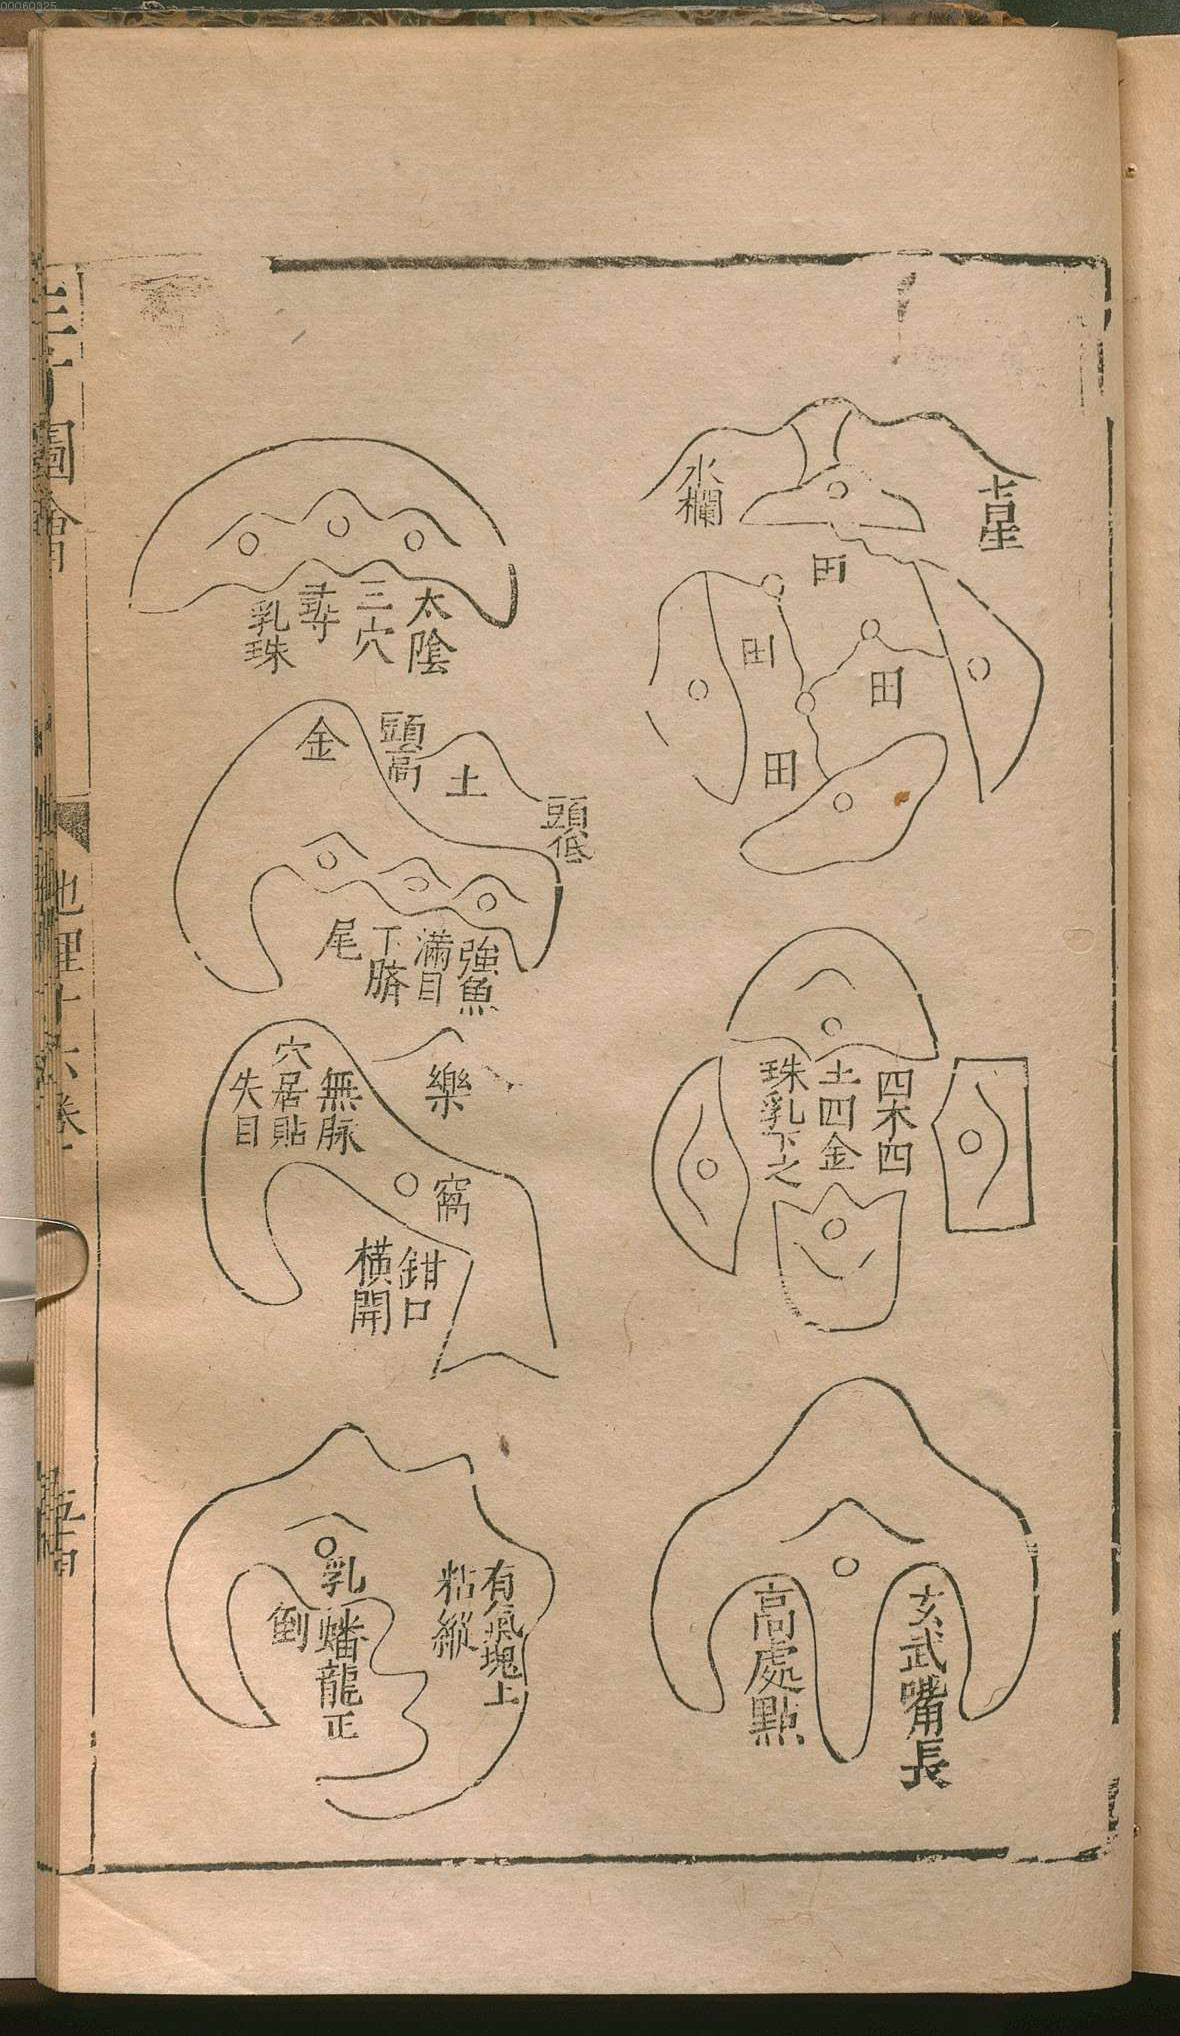 吉星
水欄
田
田
田
田
四木四
土四金
珠乳下之
玄武嘴長
高處點
太陰
三穴
尋
乳珠
頭低
土
頭高
金
強魚
滿目
丁臍
尾
樂
無脉
穴居貼
失目
窩
鉗口
橫開
有氣塊上
粘縱
乳
蟠龍正
倒
三才圖會
地理十六卷
00060325